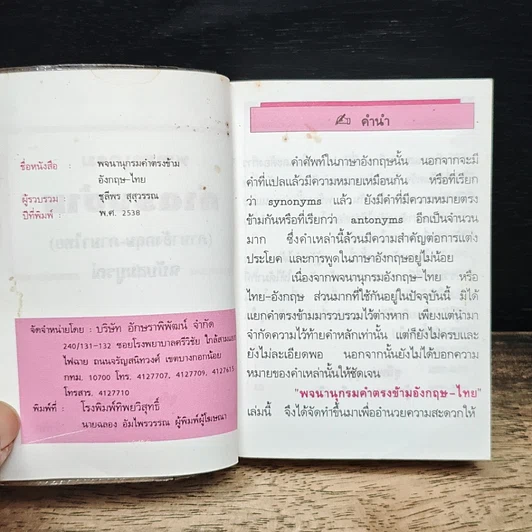 ชื่อหนังสือ : พจนานุกรมคำตรงข้าม
อังกฤษ-ไทย
ผู้รวบรวม : ชุลีพร สุสุวรรณ
ปีที่พิมพ์ : พ.ศ. 2538
จัดจำหน่ายโดย : บริษัท อักษราพิพัฒน์ จำกัด
240/131-132 ซอยโรงพยาบาลศรีวิชัย ใกล้สามแยก
ไฟฉาย ถนนจรัญสนิทวงศ์ เขตบางกอกน้อย
กทม. 10700 โทร. 4127707, 4127709, 4127615
โทรสาร. 4127710
พิมพ์ที่ : โรงพิมพ์ทิพยวิสุทธิ์
นายฉลอง อัมไพรวรรณ ผู้พิมพ์ผู้โฆษณา
คำนำ
คำศัพท์ในภาษาอังกฤษนั้น นอกจากจะมี
คำที่แปลแล้วมีความหมายเหมือนกัน หรือที่เรียก
ว่า synonyms แล้ว ยังมีคำที่มีความหมายตรง
ข้ามกันหรือที่เรียกว่า antonyms อีกเป็นจำนวน
มาก ซึ่งคำเหล่านี้ล้วนมีความสำคัญต่อการแต่ง
ประโยค และการพูดในภาษาอังกฤษอยู่ไม่น้อย
เนื่องจากพจนานุกรมอังกฤษ-ไทย หรือ
ไทย-อังกฤษ ส่วนมากที่ใช้กันอยู่ในปัจจุบันนี้ มิได้
แยกคำตรงข้ามมารวบรวมไว้ต่างหาก เพียงแต่นำมา
จำกัดความไว้ท้ายคำหลักเท่านั้น แต่ก็ยังไม่ครบและ
ยังไม่ละเอียดพอ นอกจากนั้นยังไม่ได้บอกความ
หมายของคำเหล่านั้นให้ชัดเจน
"พจนานุกรมคำตรงข้ามอังกฤษ-ไทย"
เล่มนี้ จึงได้จัดทำขึ้นมาเพื่ออำนวยความสะดวกให้